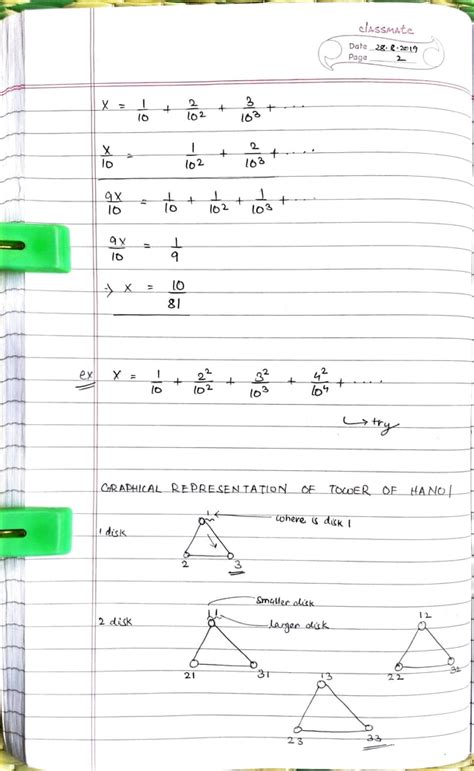 classmate
Date 28.8.2019
Page 2
x = 1/10 + 2/10² + 3/10³ + ....
x/10 = 1/10² + 2/10³ + ....
9x/10 = 1/10 + 1/10² + 1/10³ + ...
9x/10 = 1/9
→ x = 10/81
ex x = 1/10 + 2²/10² + 3²/10³ + 4²/10⁴ + ....
↳ try
GRAPHICAL REPRESENTATION OF TOWER OF HANOI
1 ← where is disk 1
1 disk
2 3
smaller disk
2 disk 11 larger disk 12
21 31 22 32
13
23 33